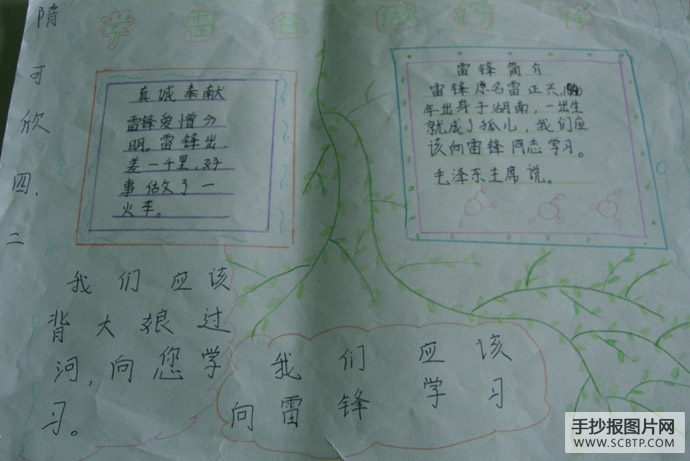 隋可欣四、二
学雷锋做好
真诚奉献
雷锋爱憎分
明。雷锋出
差一千里,好
事做了一
火车。
雷锋简介
雷锋原名雷正兴,
年出身于湖南,一出生
就成了孤儿,我们应
该向雷锋同志学习。
毛泽东主席说。
我们应该
背大娘过
河,向您学
习。
我们应该
向雷锋学习
手抄报图片网
WWW.SCBTP.COM